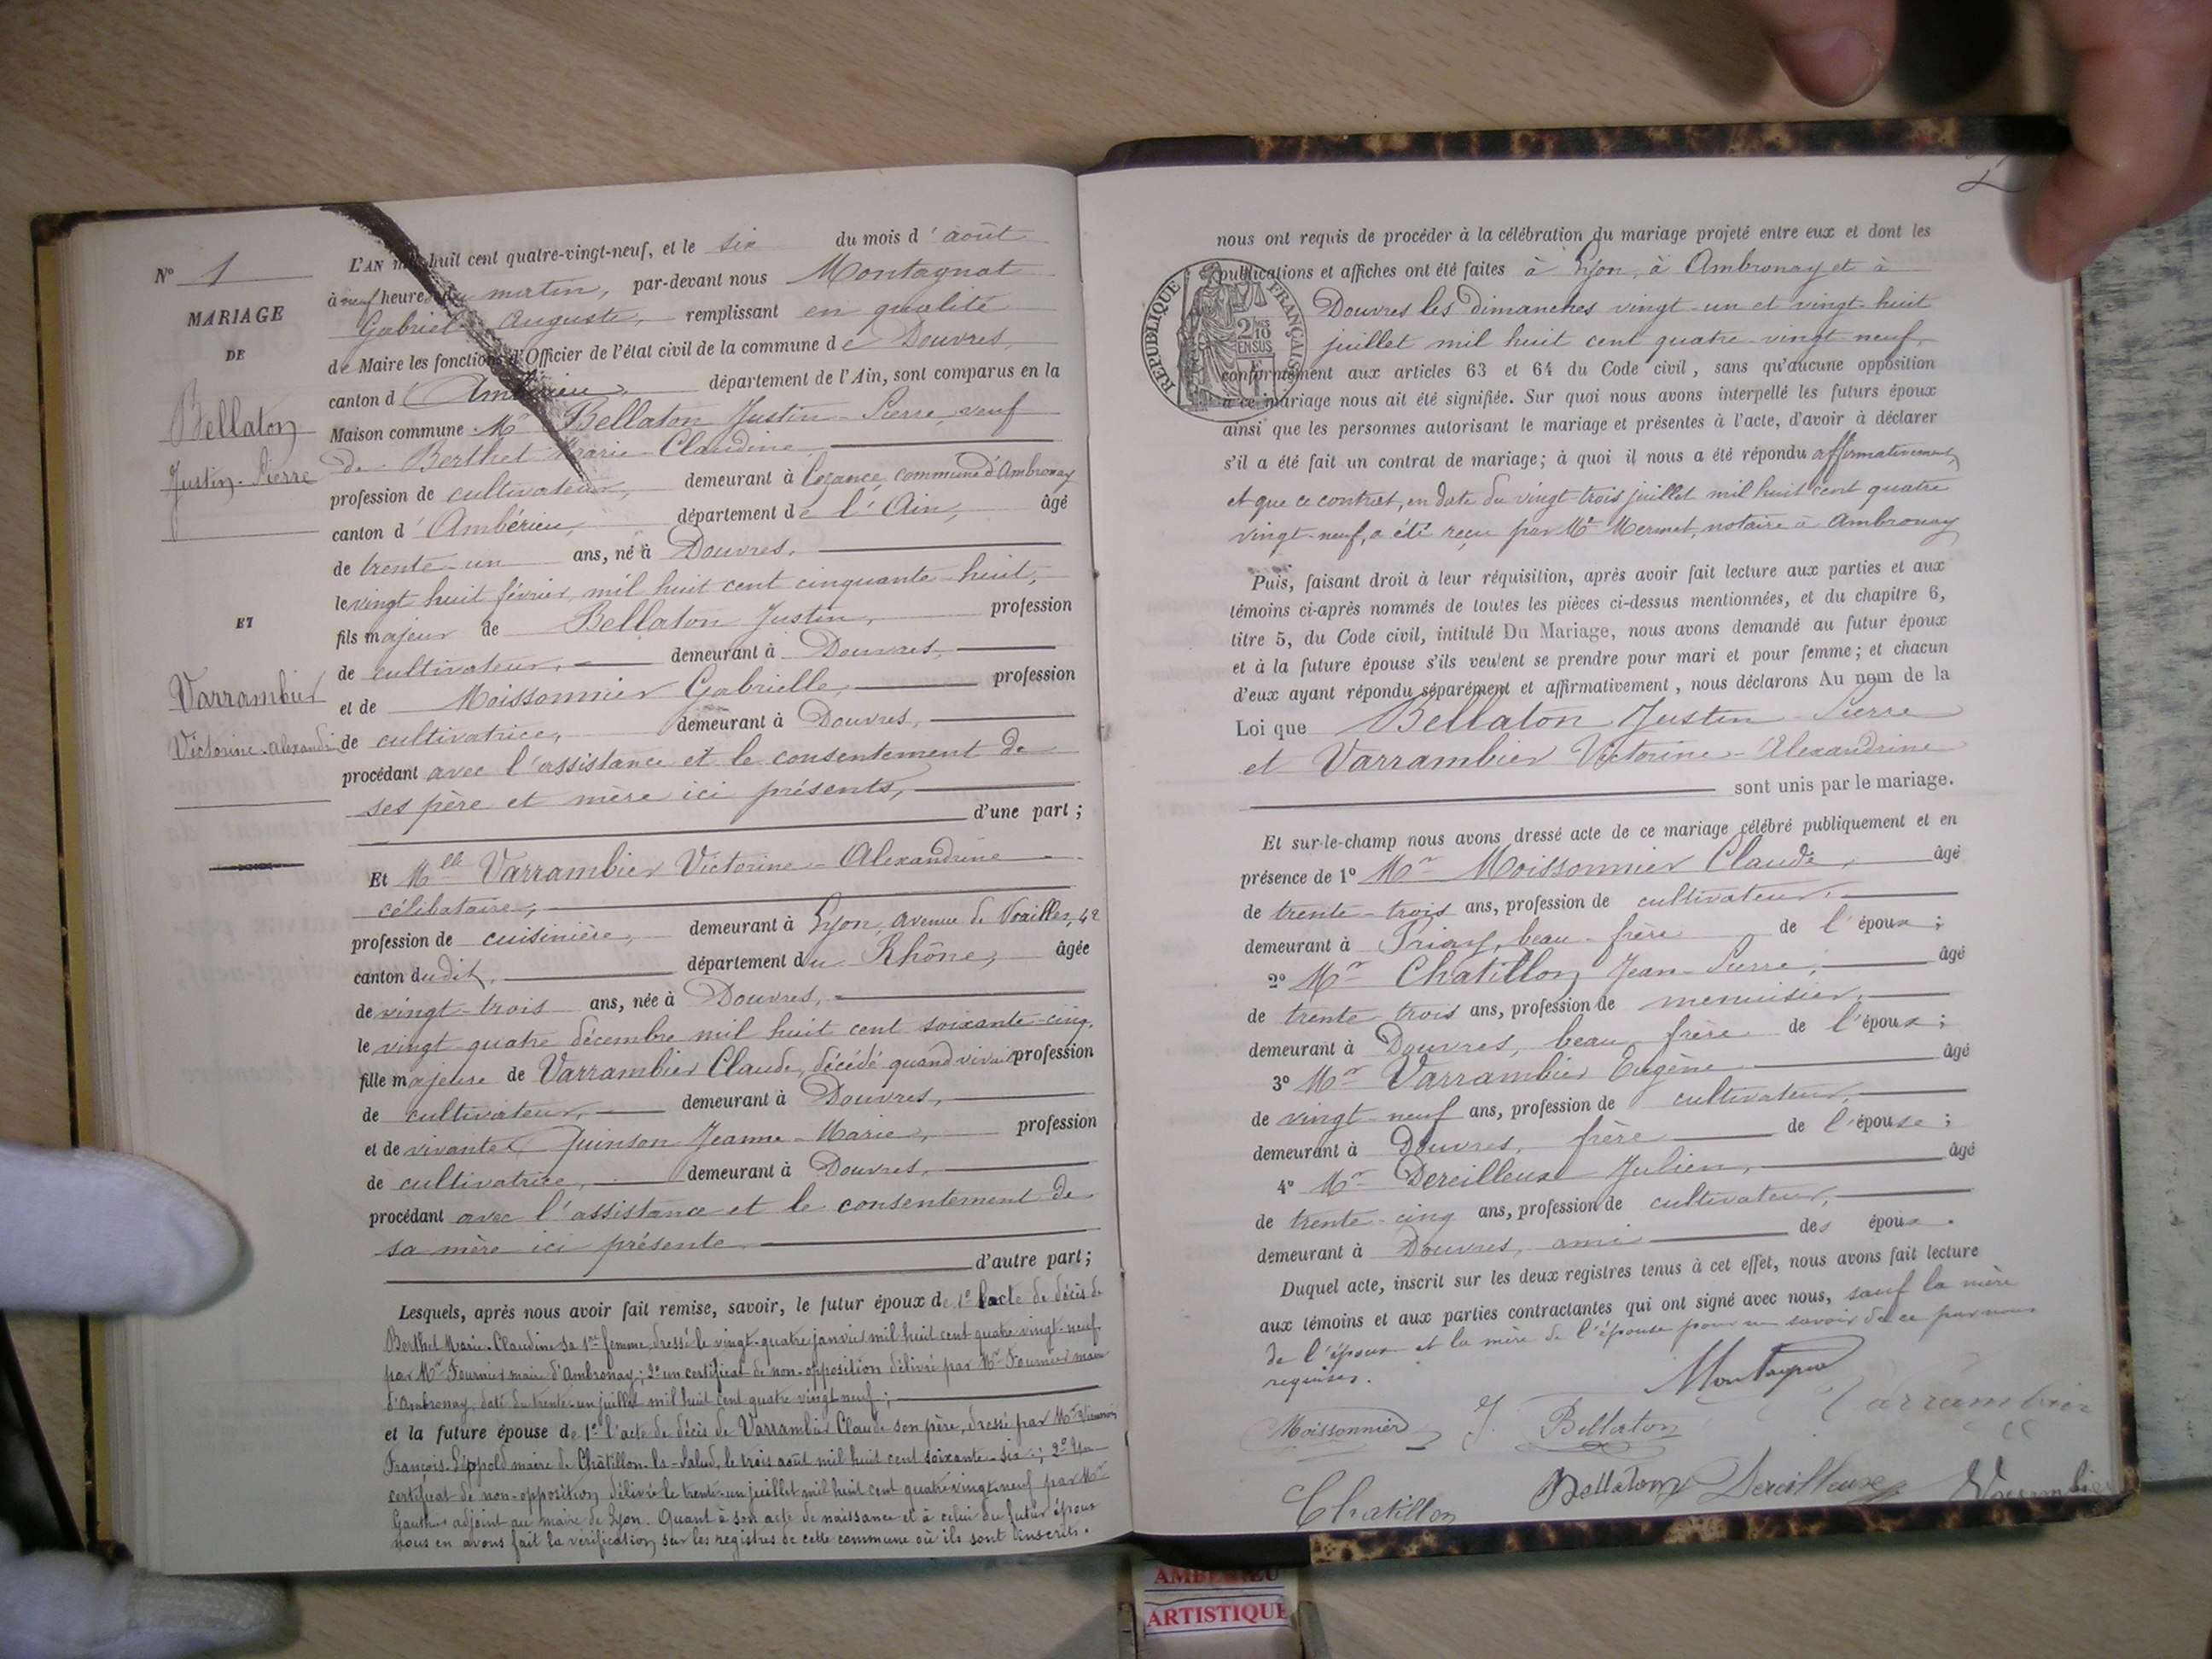 N° 1
MARIAGE
DE
Bellaton
Justin-Pierre
ET
Varrambier
Victorine-Alexandrine
L'AN mil huit cent quatre-vingt-neuf, et le six du mois d'août
à neuf heures du matin, par-devant nous Montagnat
Gabriel-Auguste, remplissant en qualité
de Maire les fonctions d'Officier de l'état civil de la commune de Douvres,
canton d'Ambérieu, département de l'Ain, sont comparus en la
Maison commune. Mr Bellaton Justin-Pierre, veuf
de Berthet Marie-Claudine
profession de cultivateur, demeurant à commune d'Ambronay
canton d'Ambérieu, département de l'Ain, âgé
de trente-un ans, né à Douvres,
le vingt huit février mil huit cent cinquante-huit,
fils majeur de Bellaton Justin, profession
de cultivateur, demeurant à Douvres,
et de Moissonnier Gabrielle, profession
de cultivatrice, demeurant à Douvres,
procédant avec l'assistance et le consentement de
ses père et mère ici présents,
d'une part;
Et Mlle Varrambier Victorine-Alexandrine
célibataire,
profession de cuisinière, demeurant à Lyon, avenue de Noailles, 42
canton dudit, département du Rhône, âgée
de vingt-trois ans, née à Douvres,
le vingt-quatre décembre mil huit cent soixante-cinq,
fille majeure de Varrambier Claude, décédé quand vivait profession
de cultivateur, demeurant à Douvres,
et de vivante Juinson Jeanne-Marie, profession
de cultivatrice, demeurant à Douvres,
procédant avec l'assistance et le consentement de
sa mère ici présente.
d'autre part;
Lesquels, après nous avoir fait remise, savoir, le futur époux de 1° l'acte de décès de
Berthet Marie-Claudine sa 1re femme, dressé le vingt-quatre janvier mil huit cent quatre vingt-neuf,
par Mr Fournier maire d'Ambronay; 2° un certificat de non-opposition délivré par Mr Fournier maire
d'Ambronay, daté du trente-un juillet mil huit cent quatre vingt neuf;
et la future épouse de 1° l'acte de décès de Varrambier Claude son père, dressé par Mr
François-Léopold maire de Châtillon-la-Palud, le trois août mil huit cent soixante-six; 2° Un
certificat de non-opposition délivré le trente-un juillet mil huit cent quatre vingt-neuf par Mr
Gauthier adjoint au maire de Lyon. Quant à son acte de naissance et à celui du futur époux
nous en avons fait la vérification sur les registres de cette commune où ils sont inscrits.
2
nous ont requis de procéder à la célébration du mariage projeté entre eux et dont les
publications et affiches ont été faites à Lyon, à Ambronay et à
Douvres les dimanches vingt-un et vingt-huit
juillet mil huit cent quatre vingt neuf,
conformément aux articles 63 et 64 du Code civil, sans qu'aucune opposition
à ce mariage nous ait été signifiée. Sur quoi nous avons interpellé les futurs époux
ainsi que les personnes autorisant le mariage et présentes à l'acte, d'avoir à déclarer
s'il a été fait un contrat de mariage; à quoi il nous a été répondu affirmativement,
et que ce contrat, en date du vingt-trois juillet mil huit cent quatre
vingt-neuf, a été reçu par Me Mermet, notaire à Ambronay
RÉPUBLIQUE FRANÇAISE
2 10 EN SUS
Puis, faisant droit à leur réquisition, après avoir fait lecture aux parties et aux
témoins ci-après nommés de toutes les pièces ci-dessus mentionnées, et du chapitre 6,
titre 5, du Code civil, intitulé Du Mariage, nous avons demandé au futur époux
et à la future épouse s'ils veulent se prendre pour mari et pour femme; et chacun
d'eux ayant répondu séparément et affirmativement, nous déclarons Au nom de la
Loi que Bellaton Justin-Pierre
et Varrambier Victorine-Alexandrine
sont unis par le mariage.
Et sur-le-champ nous avons dressé acte de ce mariage célébré publiquement et en
présence de 1° Mr Moissonnier Claude, âgé
de trente-trois ans, profession de cultivateur,
demeurant à Priay, beau-frère de l'époux;
2° Mr Chatillon Jean-Pierre, âgé
de trente-trois ans, profession de menuisier,
demeurant à Douvres, beau-frère de l'époux;
3° Mr Varrambier Eugène âgé
de vingt-neuf ans, profession de cultivateur,
demeurant à Douvres, frère de l'épouse;
4° Mr Dereilleux Julien, âgé
de trente-cinq ans, profession de cultivateur,
demeurant à Douvres, ami des époux.
Duquel acte, inscrit sur les deux registres tenus à cet effet, nous avons fait lecture
aux témoins et aux parties contractantes qui ont signé avec nous, sauf la mère
de l'époux et la mère de l'épouse pour ne savoir de ce par nous
requises.
Moissonnier J. Bellaton Varrambier
Chatillon Bellaton Dereilleux Varrambier
AMBERIEU
ARTISTIQUE